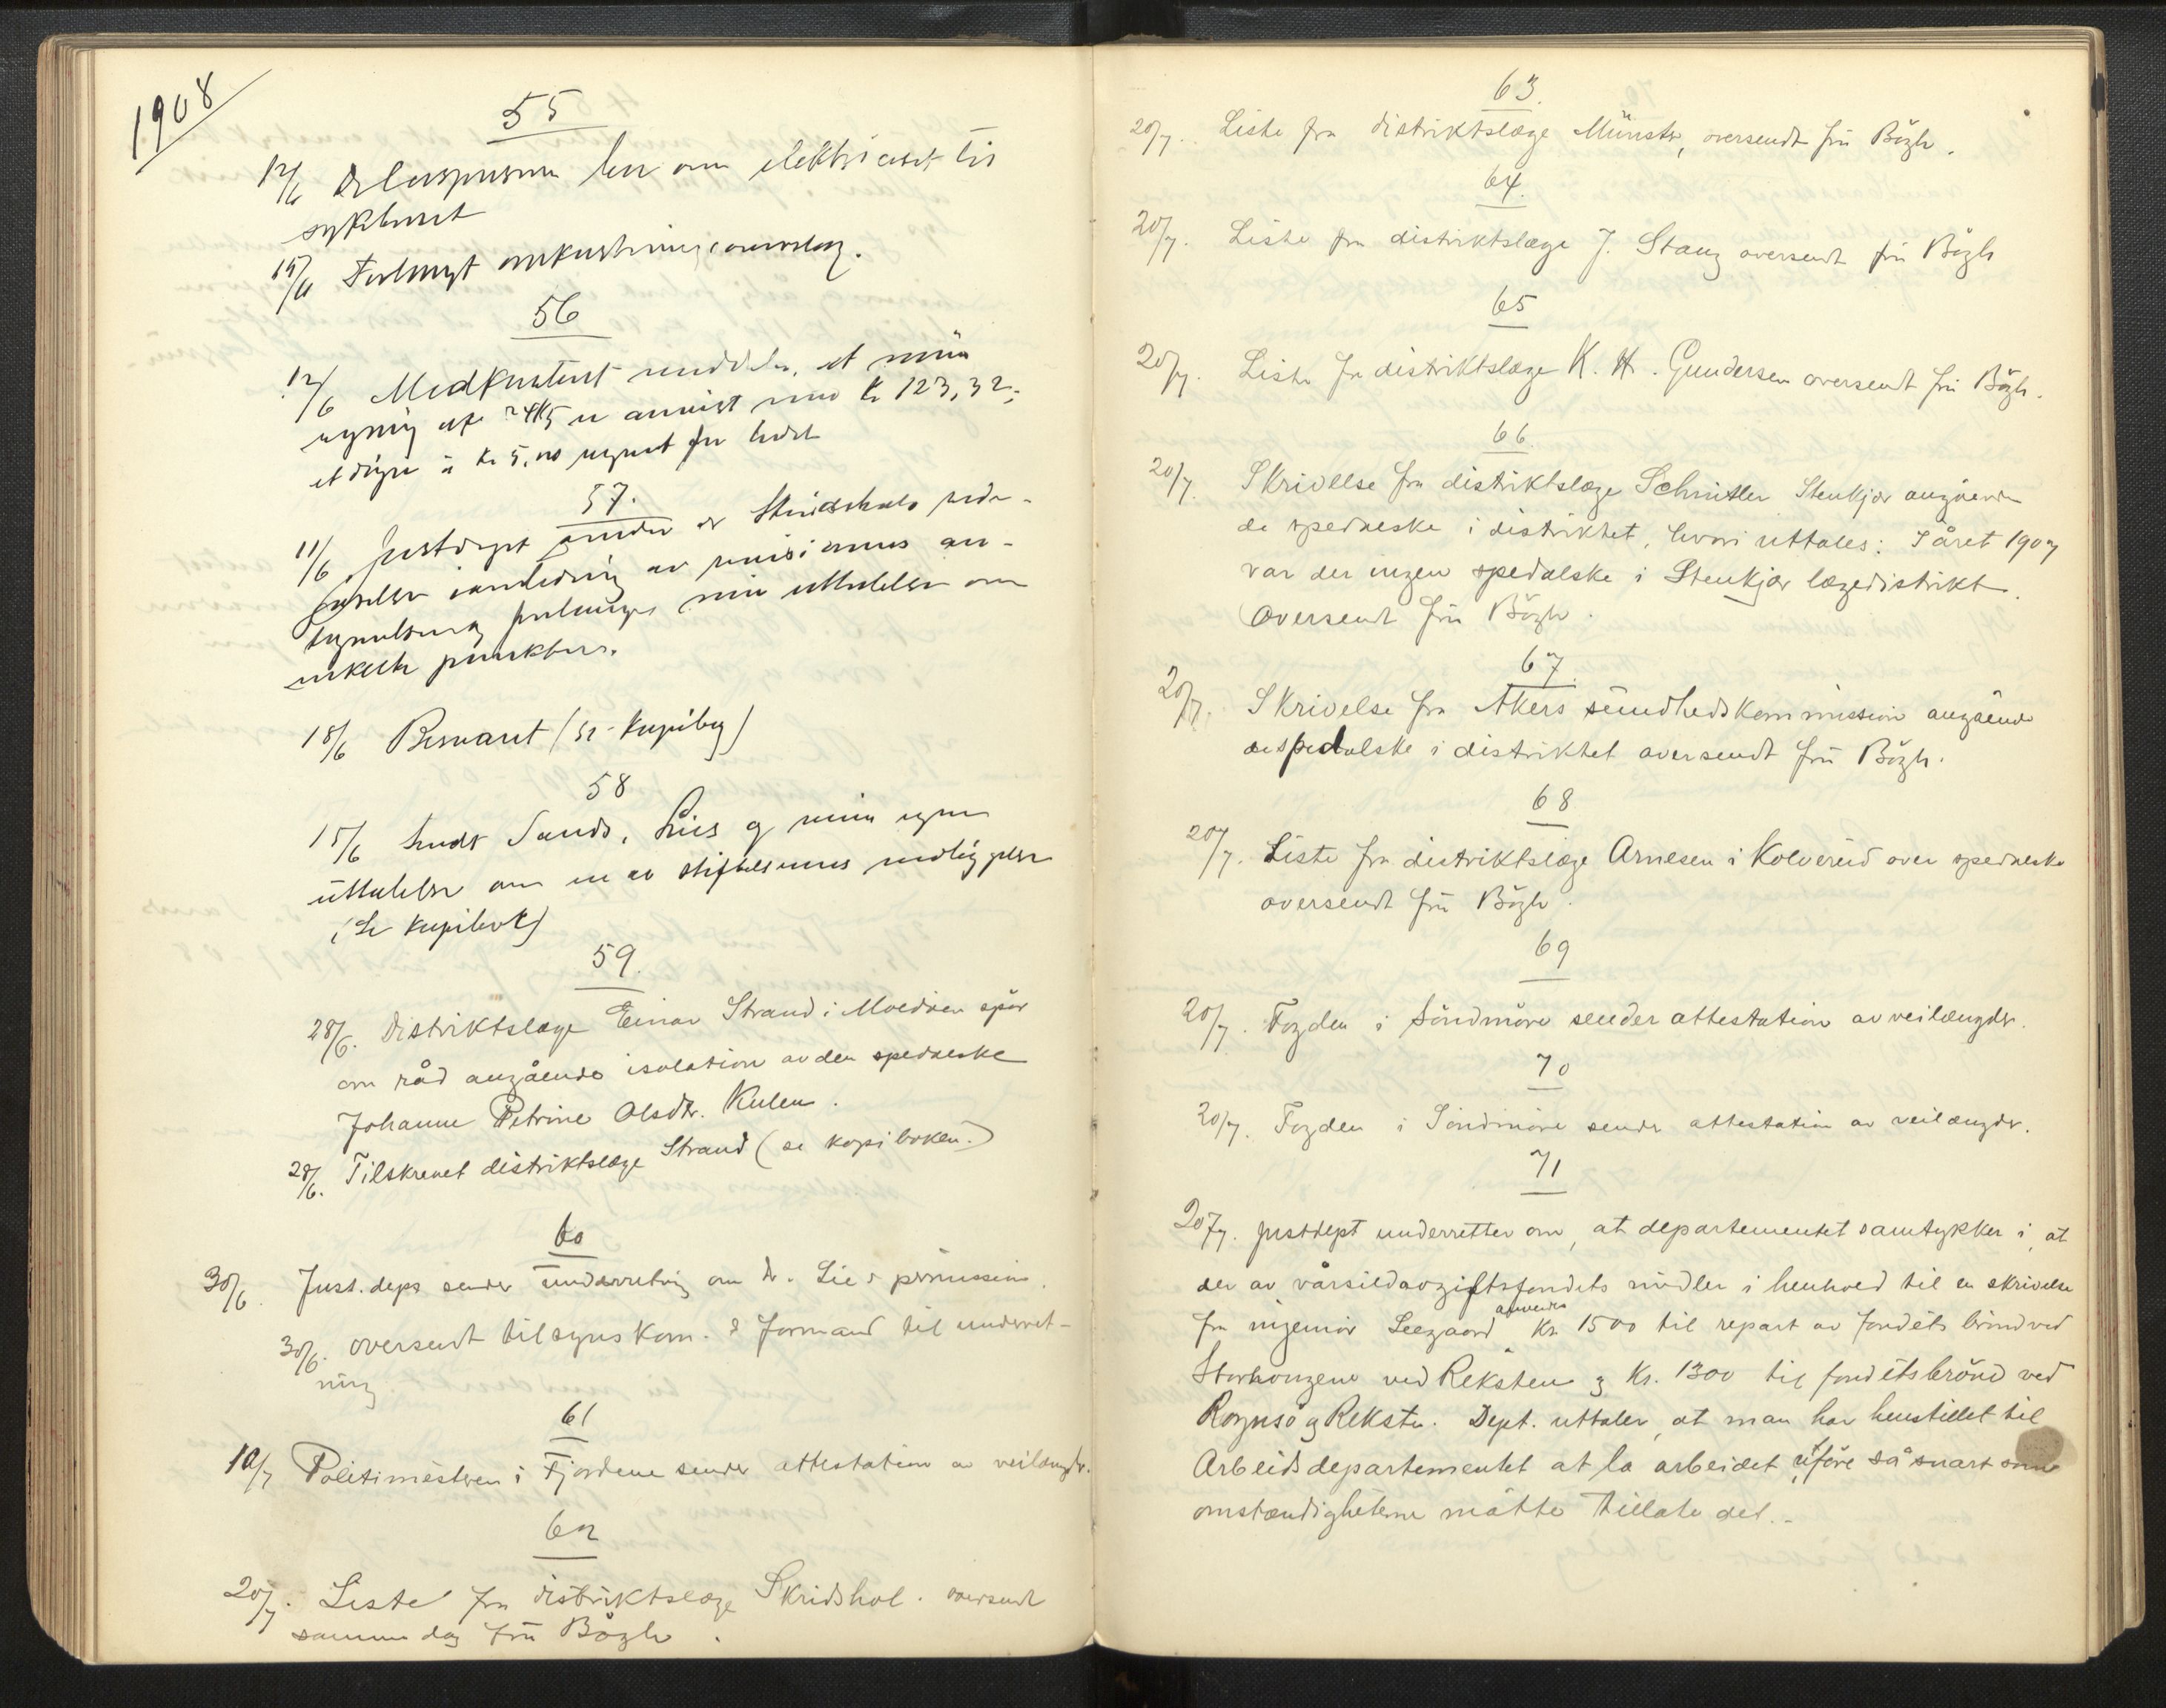 1908
55
12/6 om elektricitet til
sykehuset
15/6 Forlangt omkostningsoverslag.
56
12/6 Medkontoret meddeler, at min
regning er anvist med Kr 123,32;
et døgn à Kr 5,00
57.
11/6 Justdept sender dr Stridsvolds
av
forlanges min uttalelse om
enkelte punkter.
18/6 Besvaret (se Kopibog)
58
15/6 Sendt Sands, Lies og min egen
uttalelse om en av stiftelsernes
(Se Kopibok)
59.
28/6. Distriktslæge Einar Strand i Moedøen spør
om råd angående isolation av den spedalske
Johanne Petrine Olsdtr. Kulen.
28/6. Tilskrevet distriktslæge Strand (se kopiboken.)
60
30/6. Just. deps sender underretning om dr. Lies permission.
30/6. oversendt tilsynskom. s formand til underret-
ning
61
10/7 Politimesteren i Fjordene sender attestation av veilængder.
62
20/7. Liste fra distriktslæge Skridshol. oversendt
samme dag frü Bøgh.
63.
20/7. Liste fra distriktslæge Münster, oversendt frü Bøgh.
64.
20/7. Liste fra distriktslæge J. Stang oversendt frü Bøgh
65
20/7. Liste fra distriktslæge K. H. Gundersen oversendt frü Bøgh.
66.
20/7. Skrivelse fra distriktslæge Schnitler Stenkjær angående
de spedalske i distriktet, hvori uttales: I året 1907
var der ingen spedalske i Stenkjær lægedistrikt.
Oversendt frü Bøgh.
67.
20/7. Skrivelse fra Akers sundhedskommission angående
de spedalske i distriktet oversendt frü Bøgh.
68
20/7. Liste fra distriktslæge Arnesen i Kolvereid over spedalske
oversendt frü Bøgh.
69
20/7. Fogden i Søndmøre sender attestation av veilængder.
70
20/7. Fogden i Søndmøre sender attestation av veilængder.
71
20/7. Justdept underretter om, at departementet samtykker i, at
der av vårsildavgiftsfondets midler i henhold til en skrivelse
fra ingeniør Leegaard anvendes Kr. 1500 til repart av fondets brønd ved
Storhaugene ved Reksten og Kr. 1300 til fondets brønd ved
Rognsø og Reksten. Dept. uttaler, at man har henstillet til
Arbeidsdepartementet at la arbeidet utføre så snart som
omstændigheterne måtte tillate det.